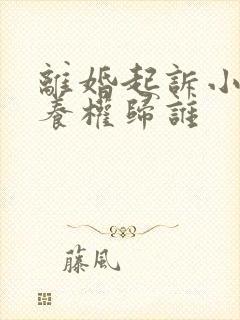 離婚起訴小
養權歸誰
藤風